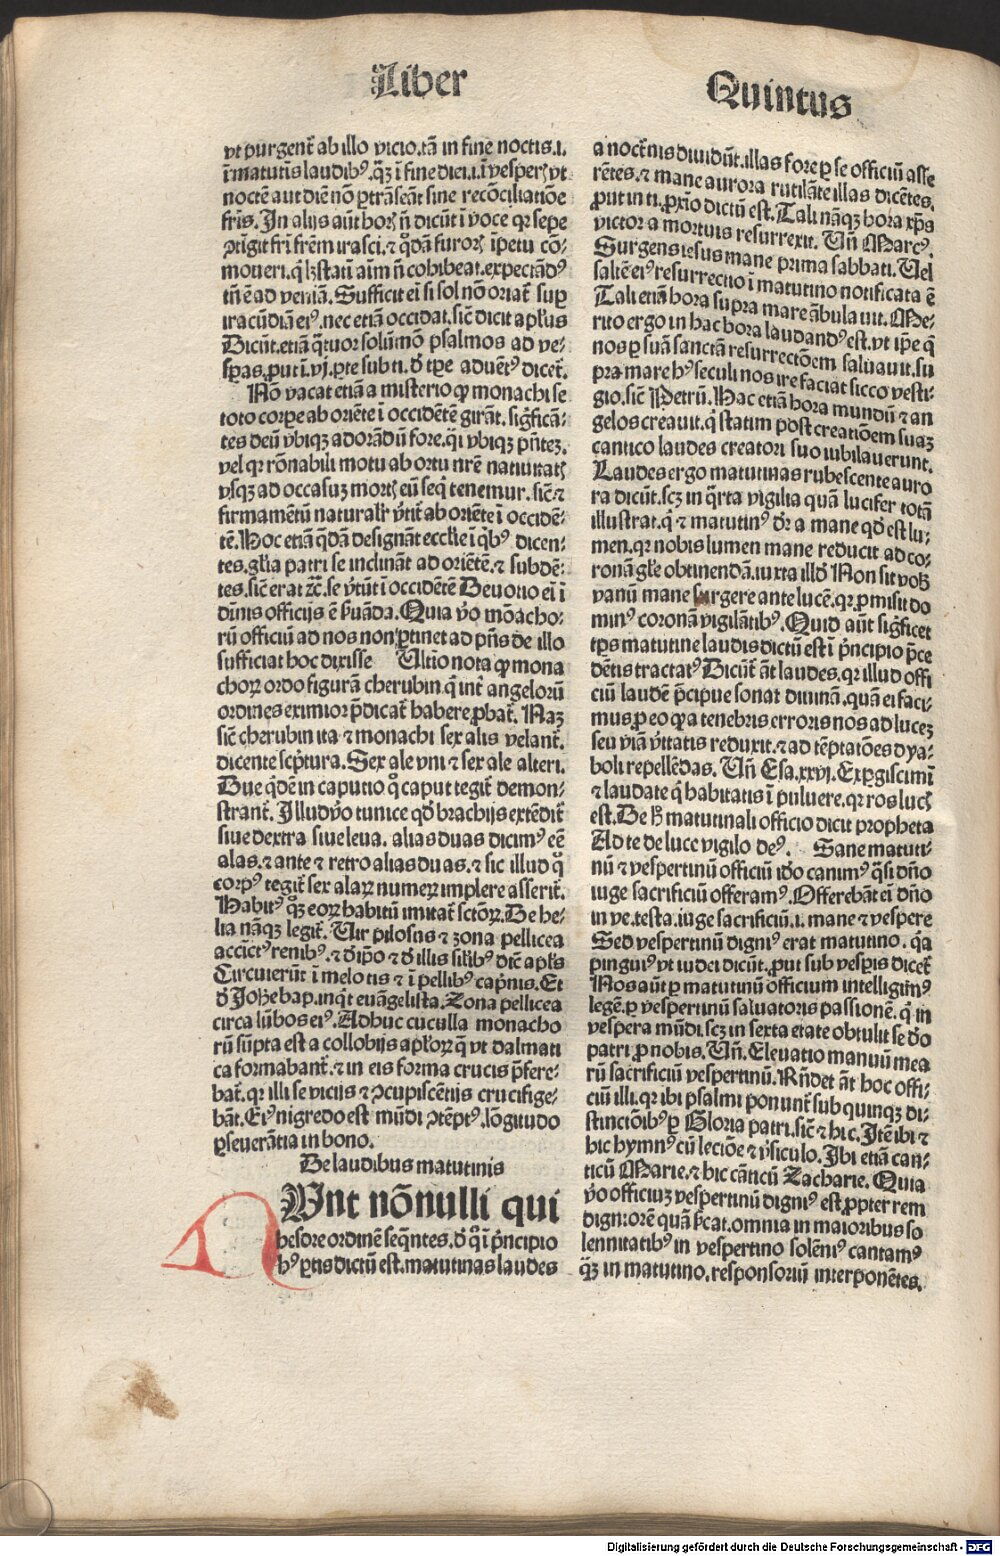 Liber
Quintus
vt purgent̃ ab illo vicio. tã in fine noctis .i.
ĩ matutis laudibꝰ. qͣꝫ ĩ fine diei .i. ĩ vesperꝝ vt
noctẽ aut diẽ nõ ꝑtrãseãt sine recõciliatiõe
fr̃is. In alijs aũt horꝝ ñ dicũt ĩ voce qꝛ sepe
ꝯtĩgit fr̃i fr̃em irasci. ⁊ qͦdã furorꝝ ĩpetu cõ⸗
moueri. qͥ lꝫ statĩ aĩm ñ cohibeat. expectãdꝰ
tñ ẽ ad veniã. Sufficit eĩ si sol nõ oriat̃ suꝑ
iracũdiã eiꝰ. nec etiã occidat. sic̃ dicit aplꝰs
Dicũt. etiã qͣtuor solũmõ psalmos ad ve⸗
sꝑas. put ĩ .vj. ꝑte sub ti. đ tꝑe aduẽtꝰ dicet̃.
Nõ vacat etiã a misterio ꝙ monachi se
toto corꝑe ab oriẽte ĩ occidẽtẽ girãt. sig̃ficã⸗
tes deũ vbiqꝫ adorãdũ fore. qͥ ĩ vbiqꝫ pñteꝫ.
vel qꝛ rõnabili motu ab ortu nr̃e natiuitatꝭ
vsqꝫ ad occasuꝫ mortꝭ eũ seqͥ tenemur. sic̃ ⁊
firmamẽtũ naturalr̃ v̾tit̃ ab oriẽte ĩ occidẽ⸗
tẽ. Hoc etiã qͥdã designãt ecclĩe ĩ qͥbꝰ dicen⸗
tes. gl̃ia patri se inclinãt ad oriẽtẽ. ⁊ subdẽ⸗
tes. sic̃ erat ⁊c̃. se v̾tũt ĩ occidẽtẽ Deuotio eĩ ĩ
diũnis officijs ẽ ẜuãda. Quia v̾o mõacho⸗
rũ officiũ ad nos non ꝑtinet ad pñs de illo
sufficiat hoc dixisse Ultĩo nota ꝙ mona
choꝝ ordo figurã cherubin. qͥ int̾ angelorũ
ordines eximior p̃dicat̃ habere ꝓbat̃. Naꝫ
sic̃ cherubin ita ⁊ monachi sex alis velant̃.
dicente sc̃ptura. Sex ale vni ⁊ sex ale alteri.
Due qͥdẽ in caputio qͦ caput tegit̃ demon⸗
strant̃. Illud v̾o tunice qd̾ brachijs extẽdit̃
siue dextra siue leua. alias duas dicimꝰ eẽ
alas. ⁊ ante ⁊ retro alias duas. ⁊ sic illud qͦ
corpꝰ tegit̃ sex alaꝝ numeꝝ implere asserit̃.
Habitꝰ qͦꝫ eoꝝ habitũ imitat̃ sc̃toꝝ. De he⸗
lia nãqꝫ legit̃. Uir pilosus ⁊ zona pellicea
accĩctꝰ renibꝰ. ⁊ đ ip̃o ⁊ đ illis sil̃ibꝰ dic̃ apl̃s
Circuierũt ĩ melotis ⁊ ĩ pellibꝰ cap̾nis. Et
đ Johẽ bap. inqͥt euãgelista. Zona pellicea
circa lũbos eiꝰ. Adhuc cuculla monacho
rũ sũpta est a collobijs apl̃oꝝ q̃ vt dalmati
ca formabant̃. ⁊ in eis forma crucis p̃fere⸗
bat̃. qꝛ illi se vicijs ⁊ ꝯcupiscẽtijs crucifige⸗
bãt. Eiꝰ nigredo est mũdi ꝯtẽptꝰ. lõgitudo
ꝑseuerãtia in bono.
De laudibus matutinis
Unt nõnulli qui
hesdre ordinẽ seqͣntes. đ qͦ ĩ p̾ncipio
hꝰ ꝑtis dictũ est. matutinas laudes
a noct̾nis diuidũt. illas fore ꝑ se officiũ asse
rẽtes. ⁊ mane aurora rutilãte illas dicẽtes.
ꝓut in ti. ꝓxĩo dictũ est. Tali nãqꝫ hora xp̃s
victor a mortuis resurrexit. Uñ Marcꝰ.
Surgens iesus mane prima sabbati. Uel
saltẽ eiꝰ resurrectio ĩ matutino notificata ẽ
Tali etiã hora supra mare ãbulauit. Me⸗
rito ergo in hac hora laudandꝰ est. vt ip̃e qͥ
nos ꝑ suã sanctã resurrectõem saluauit. su
pra mare hꝰ seculi nos ire faciat sicco vesti⸗
gio. sic̃ Petrũ. Hac etiã hora mundũ ⁊ an
gelos creauit. qͥ statim post creatiõem suaꝫ
cantico laudes creatori suo iubilauerunt.
Laudes ergo matutinas rubescente auro
ra dicũt. scꝫ in qͣrta vigilia quã lucifer totã
illustrat. qͥ ⁊ matutinꝰ dr̃ a mane qd̾ est lu⸗
men. qꝛ nobis lumen mane reducit ad co⸗
ronã gl̃e obtinendã. iuxta illđ Non sit vob̾
vanũ mane surgere ante lucẽ. qꝛ ꝓmisit do
minꝰ coronã vigilãtibꝰ. Quid aũt sig̃ficet
tp̃s matutine laudis dictũ est ĩ p̾ncipio p̃ce
dẽtis tractatꝰ Dicũt̃ ãt laudes. qꝛ illud offi
ciũ laudẽ p̃cipue sonat diuinã. quã ei faci⸗
mus ꝓ eo ꝙ a tenebris erroris nos ad luceꝫ
seu viã v̾itatis reduxit. ⁊ ad tẽptatões dya⸗
boli repellẽdas. Uñ Esa. xxvj. Exꝑgiscimĩ
⁊ laudate qͥ habitatis ĩ puluere. qꝛ ros lucꝭ
est. De hͦ matutinali officio dicit propheta
Ad te de luce vigilo deꝰ. Sane matuti⸗
nũ ⁊ vespertinũ officiũ iđo canimꝰ qͣsi dño
iuge sacrificiũ offeramꝰ. Offerebãt eĩ dño
in ve. testa. iuge sacrificiũ .i. mane ⁊ vespere
Sed vespertinũ digniꝰ erat matutino. qͥa
pinguiꝰ vt iudei dicũt. ꝓut sub vesꝑis dicet̃
Nos aũt ꝑ matutinũ officium intelligimꝰ
legẽ. ꝑ vespertinũ saluatoris passionẽ. qͥ in
vespera mũdi scꝫ in sexta etate obtulit se đo
patri ꝓ nobis. Uñ. Eleuatio manuũ mea
rũ sacrificiũ vespertinũ. Rñdet ãt hoc offi⸗
ciũ illi. qꝛ ibi psalmi ponunt̃ sub quinqꝫ di⸗
stinctiõibꝰ ꝑ Gloria patri. sic̃ ⁊ hic. Itẽ ibi ⁊
hic hymnꝰ cũ lectiõe ⁊ v̾siculo. Ibi etiã can⸗
ticũ Marie. ⁊ hic cãticũ Zacharie. Quia
v̾o officiuꝫ vespertinũ digniꝰ est. ꝓpter rem
digniorẽ quã p̾cat. omnia in maioribus so
lennitatibꝰ in vespertino solẽniꝰ cantamꝰ
qͣꝫ in matutino. responsoriũ interponẽtes.
Digitalisierung gefördert durch die Deutsche Forschungsgemeinschaft - DFG